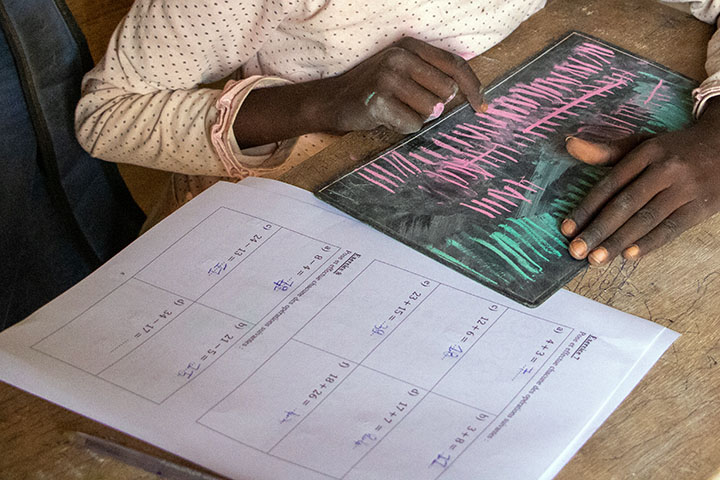 Exercice 7
Pose et effectue chacune des opérations suivantes :
a) 4 + 3 = 7
b) 3 + 8 = 11
c) 12 + 6 = 18
d) 17 + 7 = 24
e) 23 + 15 =
f) 18 + 26 =
Exercice 8
Pose et effectue chacune des opérations suivantes :
a) 8 - 4 =
b) 21 - 5 =
c) 24 - 13 =
d) 34 - 17 =